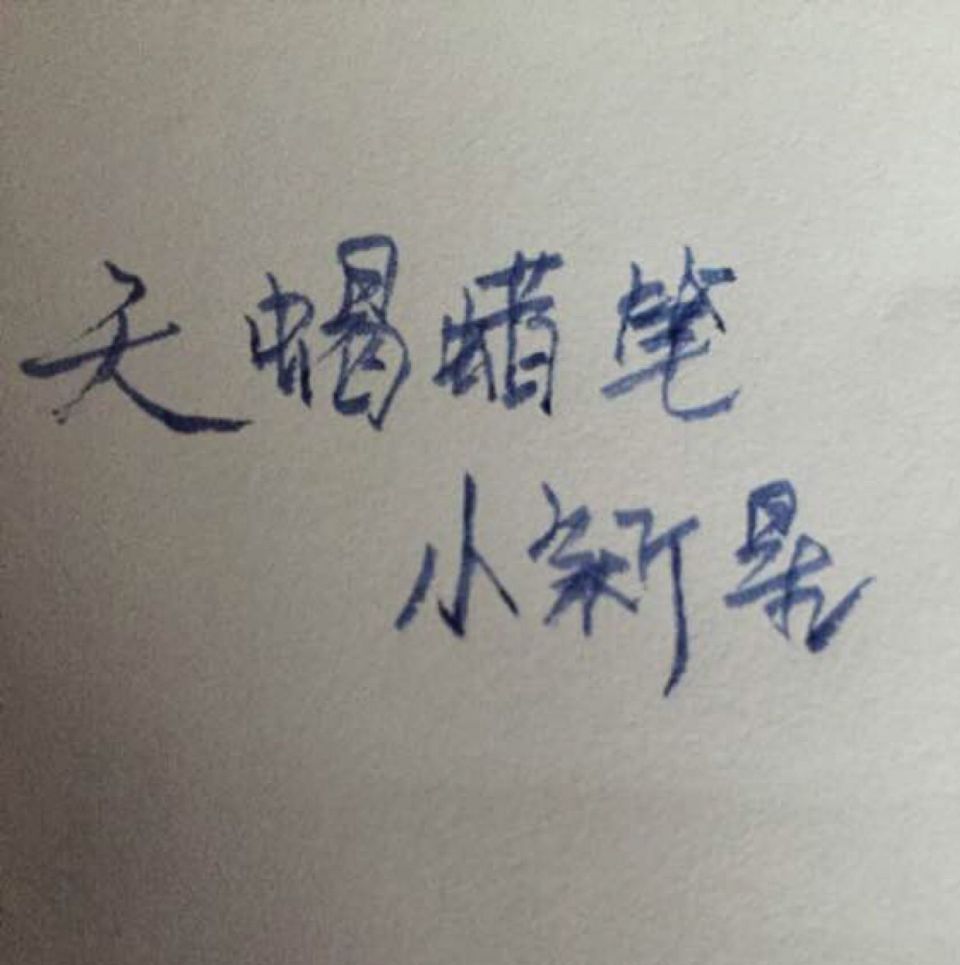 天蝎蜡笔
小新是